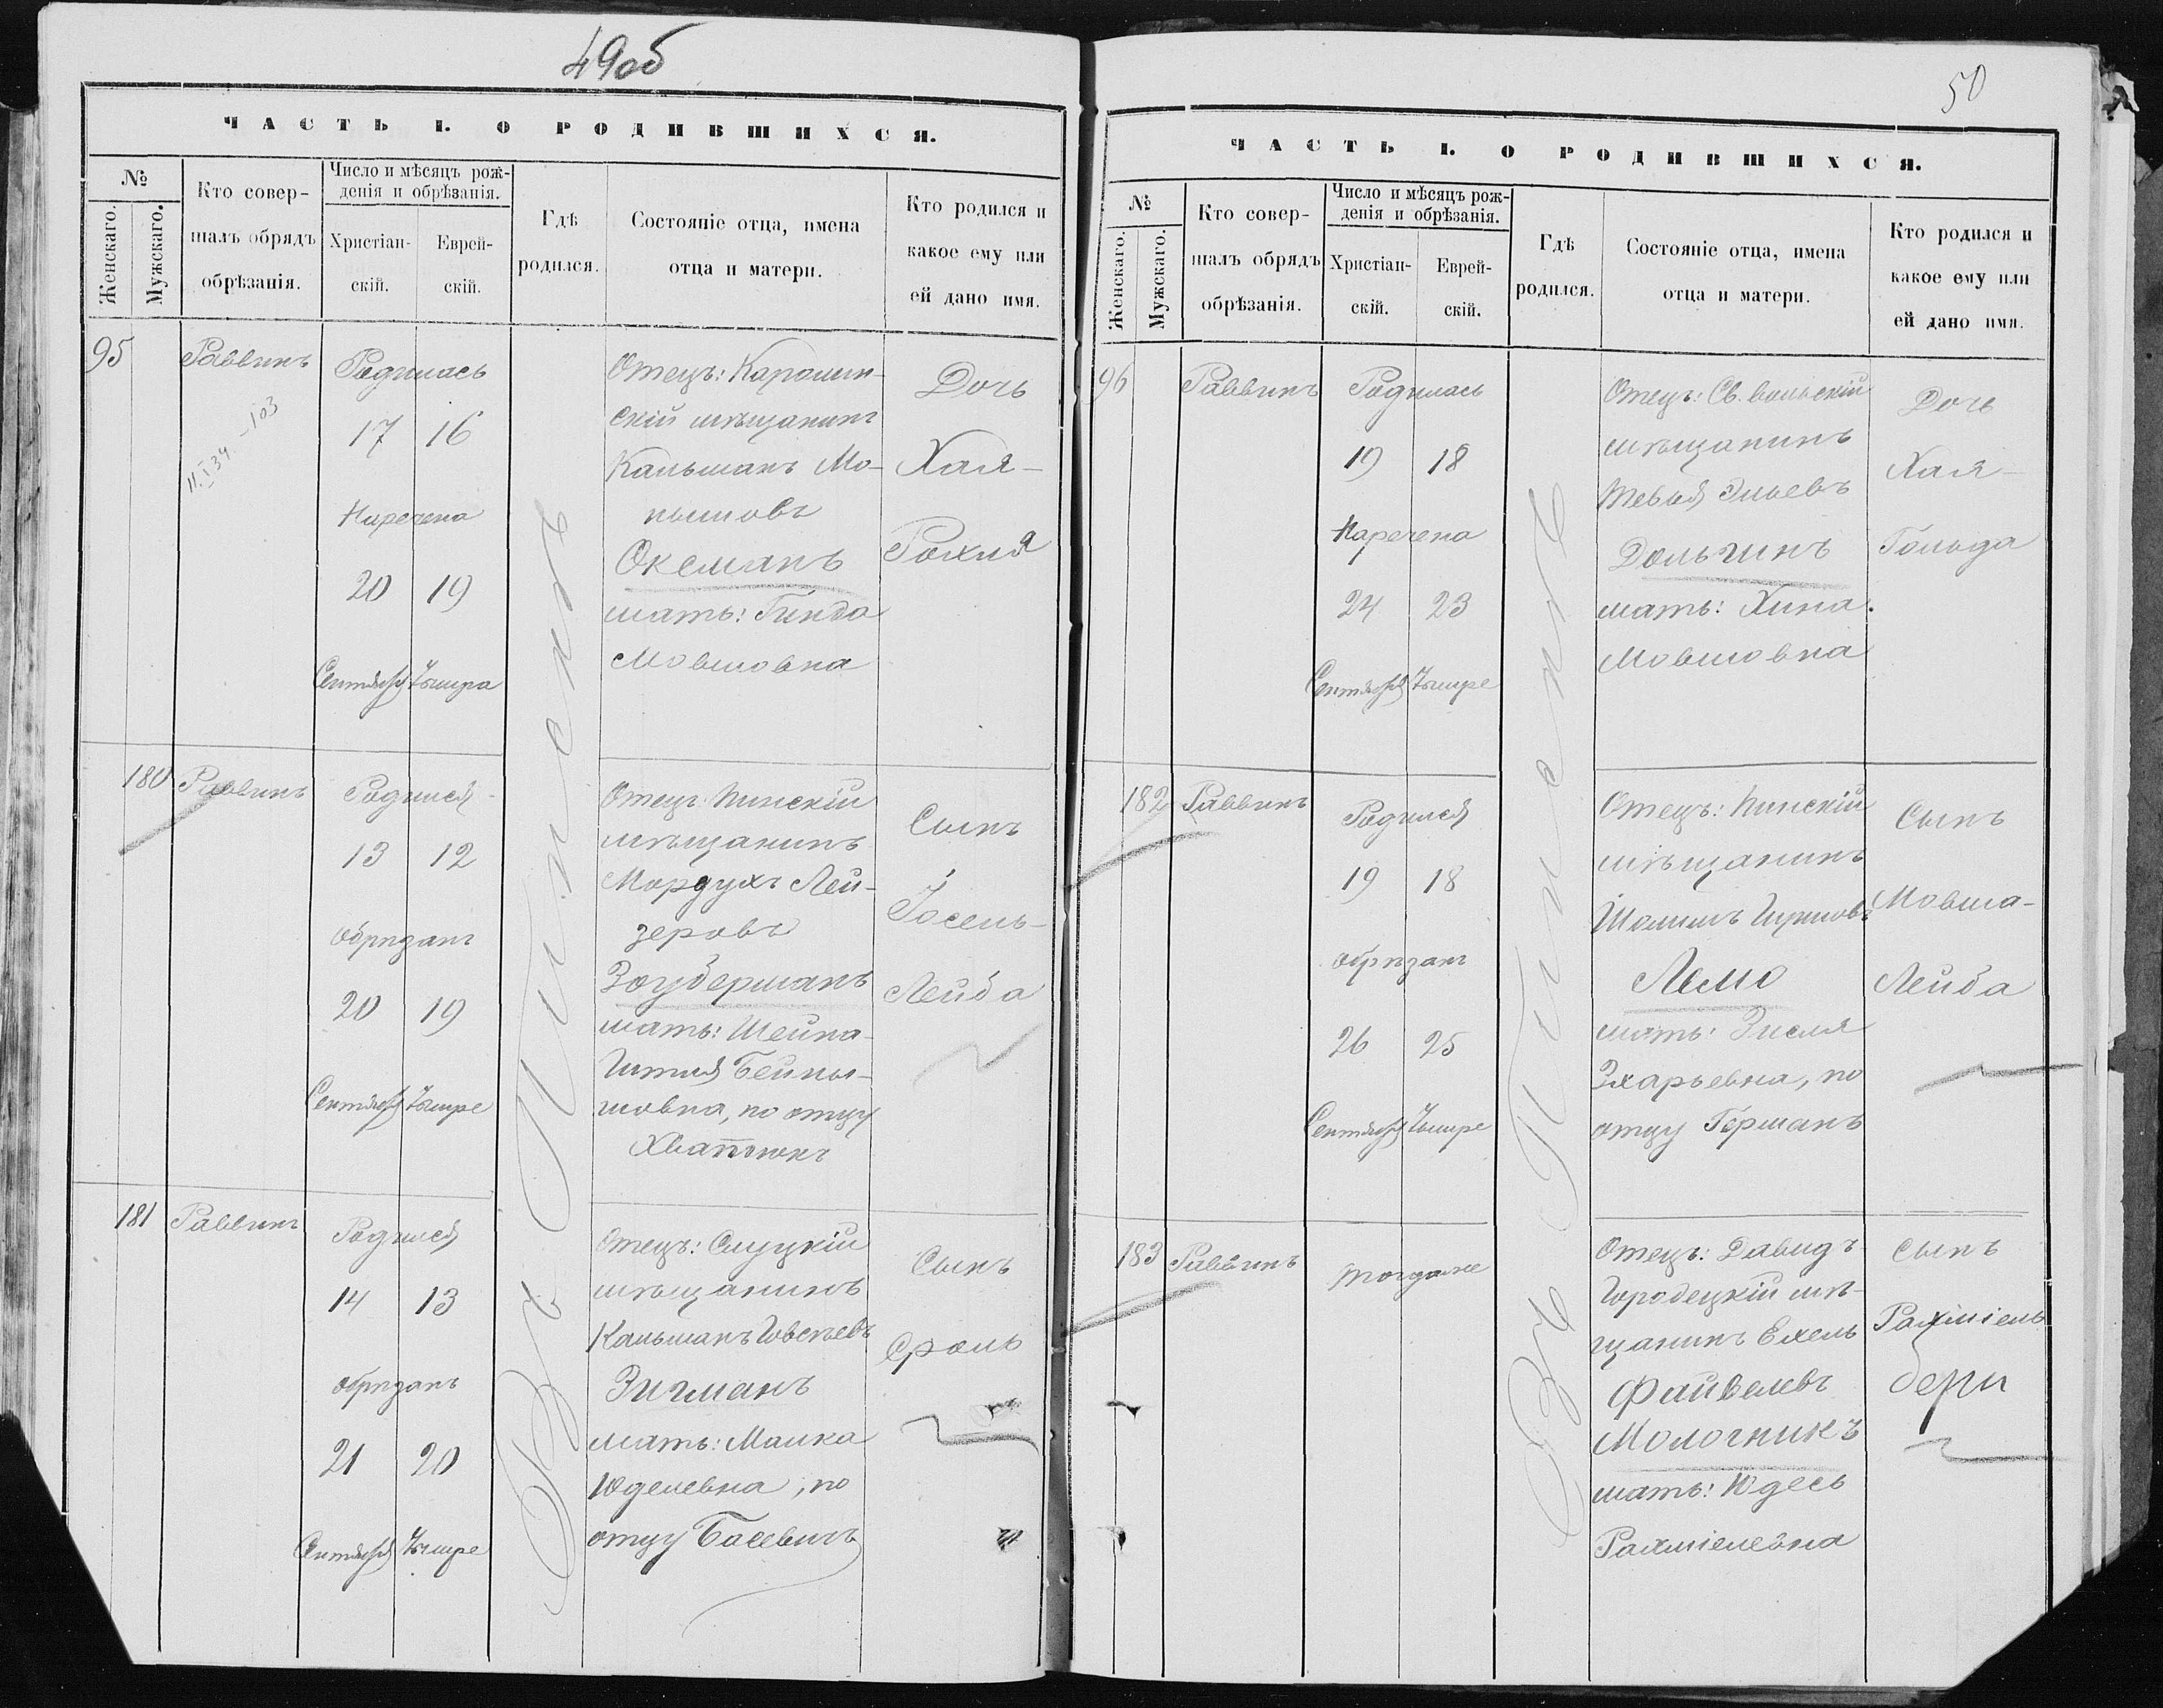 49об
ЧАСТЬ I. О РОДИВШИХСЯ.
№
Женскаго.
Мужскаго.
Кто совер-
шалъ обрядъ
обрѣзанія.
Число и мѣсяцъ рож-
денія и обрѣзанія.
Христіан-
скій.
Еврей-
скій.
Гдѣ
родился.
Состояніе отца, имена
отца и матери.
Кто родился и
какое ему или
ей дано имя.
95
Раввинъ
11.I 34 - 103
Родилась
17 16
Наречена
20 19
Сентября Тишра
Въ Пинскѣ
Отецъ: Каролин-
скій мѣщанинъ
Кальманъ Мо-
Оксманъ
мать: Гинда
Мовшовна
Дочь
Хая-
Рохля
180
Раввинъ
Родился
13 12
обрѣзанъ
20 19
Сентября Тишре
Отецъ: Пинскій
мѣщанинъ
Мордухъ Лей-
зеровъ
Зоуберманъ
мать: Шейна-
Гитля Бейны-
шовна, по отцу
Хватюкъ
Сынъ
Іосель-
Лейба
181
Раввинъ
Родился
14 13
обрѣзанъ
21 20
Сентября Тишре
Отецъ: Слуцкій
мѣщанинъ
Кальманъ Іовелевъ
Зигманъ
мать: Малка
Юделевна, по
отцу Басевичъ
Сынъ
Сроль
50
ЧАСТЬ I. О РОДИВШИХСЯ.
№
Женскаго.
Мужскаго.
Кто совер-
шалъ обрядъ
обрѣзанія.
Число и мѣсяцъ рож-
денія и обрѣзанія.
Христіан-
скій.
Еврей-
скій.
Гдѣ
родился.
Состояніе отца, имена
отца и матери.
Кто родился и
какое ему или
ей дано имя.
96
Раввинъ
Родилась
19 18
Наречена
24 23
Сентября Тишре
Въ Пинскѣ
Отецъ: Св. вольскій
мѣщанинъ
Тевья Эльевъ
Дольчинъ
мать: Хина
Мовшовна
Дочь
Хая-
Гольда
182
Раввинъ
Родился
19 18
обрѣзанъ
26 25
Сентября Тишре
Отецъ: Пинскій
мѣщанинъ
Шоломъ Гиршовъ
Лемо
мать: Зисля
Зхарьевна, по
отцу Германъ
Сынъ
Мовша-
Лейба
183
Раввинъ
тогдаже
Отецъ: Давидъ-
Городецкій мѣ-
щанинъ Ехель
Файвелевъ
Молочникъ
мать: Юдесь
Рахміелевна
Сынъ
Рахміель
берп